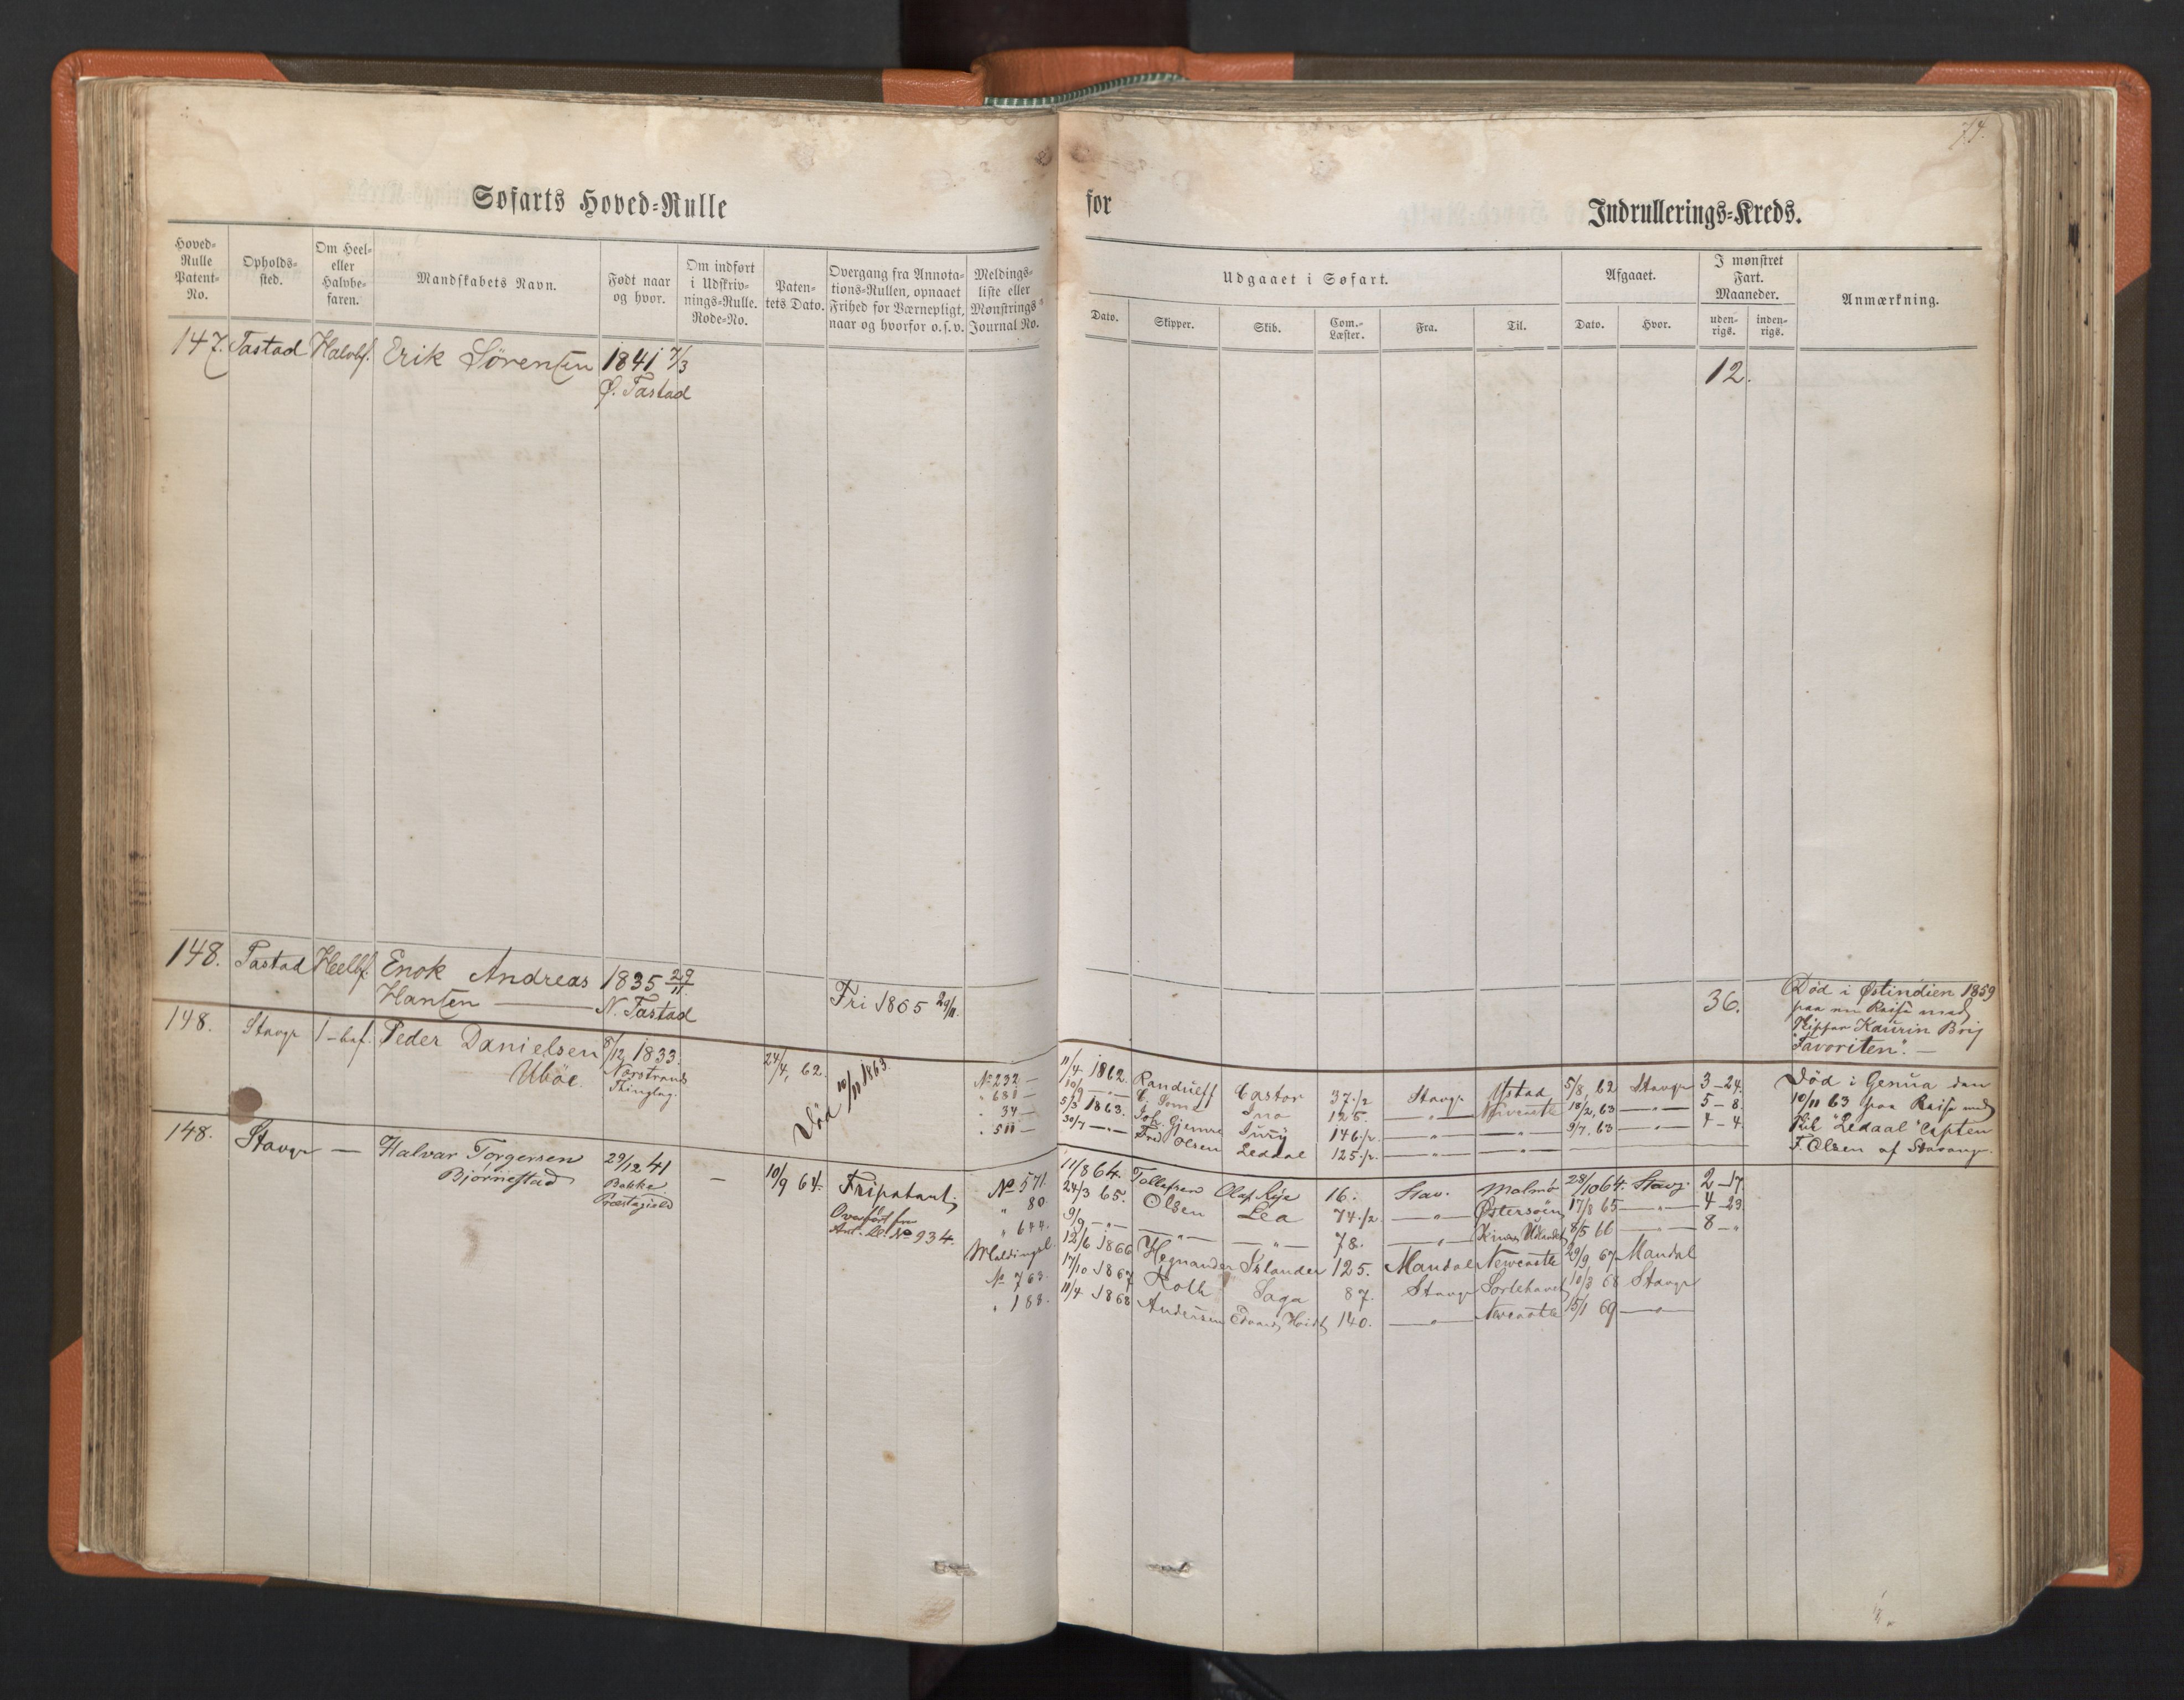 74.
Søfarts Hoved-Rulle
for
Indrullerings-Kreds.
Hoved-Rulle Patent-No.
Opholds-sted.
Om Heel- eller Halvbe-faren.
Mandskabets Navn.
Født naar og hvor.
Om indført i Udskriv-nings-Rulle. Rode-No.
Paten-tets Dato.
Overgang fra Annota-tions-Rullen, opnaaet Frihed for Værnepligt, naar og hvorfor o.s.v.
Meldings-liste eller Mønstrings Journal No.
Udgaaet i Søfart.
Dato.
Skipper.
Skib.
Com.-Læster.
Fra.
Til.
Afgaaet.
Dato.
Hvor.
I mønstret Fart. Maaneder.
uden-rigs.
inden-rigs.
Anmærkning.
147. Tastad Halvbf. Erik Sørensen 1841 7/3
Ø. Tastad
12.
148. Tastad Heelbf. Enok Andreas 1835 29/11
Hansen — N. Tastad
Fri 1865 29/11.
36.
Død i Østindien 1859
paa en Reise med
Skipper Kaurin Brig
"Favoriten". —
148. Stavgr 1-baf. Peder Danielsen 8/12 1833.
Uböe.
Norstrands
Thinglag.
24/4, 62.
Død 10/11 1863.
No 232 — 11/4 1862. Randulff Castor 37./2 Stavgr Ystad 5/8, 62 Stavgr 3-24.
" 688 — 10/9 —"— Ino 125. —"— 18/2, 63 —"— 5-8.
" 34 — 5/3 1863. Joh. Gjemre Juny 146./2. —"— —"— 9/7. 63 —"— 4-4
" 511 — 30/7 —"— Fred Olsen Ledaal 125./2. —"— —"—
Død i Genua den
10/11 63 paa Reise med
Skib "Ledaal" Capten
F. Olsen af Stavangr.
148. Stavgr — Halvar Torgersen
Bjørnestad
29/12 41
Bakke
Præstegield
—
10/9 64.
Fripatent.
Overført fra
Ant. Rl. No 934.
No 571. 11/8 64. Tollefsen Olaf Kyr 16. Stav. Malmö 28/10 64. Stavg. 2-17
" 80 24/3 65. Olsen Lea 74./2 —"— Østersöen 17/8 65 —"— 4-23
" 644. 9/9 —"— —"— —"— 78. —"— 8/5 66 —"— 8-"
Meldingsl. 12/6 1866 Hegnander Islander 125. Mandal Newcastle 29/9, 67 Mandal
No 763. 17/10 1867 Roth Saga 87. Stavgr Sortehavet 10/3 68 Stavgr
" 188. 11/4 1868 Andersen 140. —"— Newcastle 15/1 69 —"—